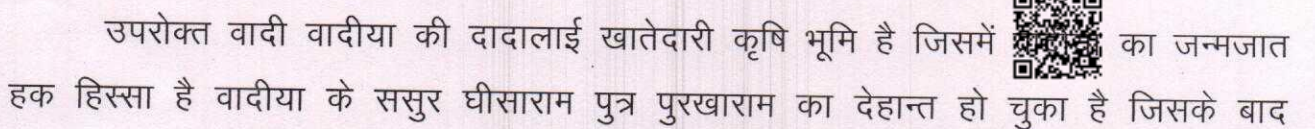 उपरोक्त वादी वादीया की दादालाई खातेदारी कृषि भूमि है जिसमें का जन्मजात
हक हिस्सा है वादीया के ससुर घीसाराम पुत्र पुरखाराम का देहान्त हो चुका है जिसके बाद